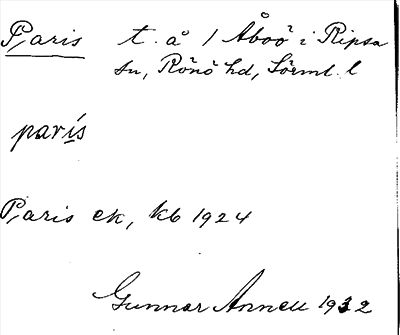 Paris t. å / Åboö i Ripsa
sn, Rönö hd, Sörml. l
parís
Paris ek, kb 1924
Gunnar Annell 1932